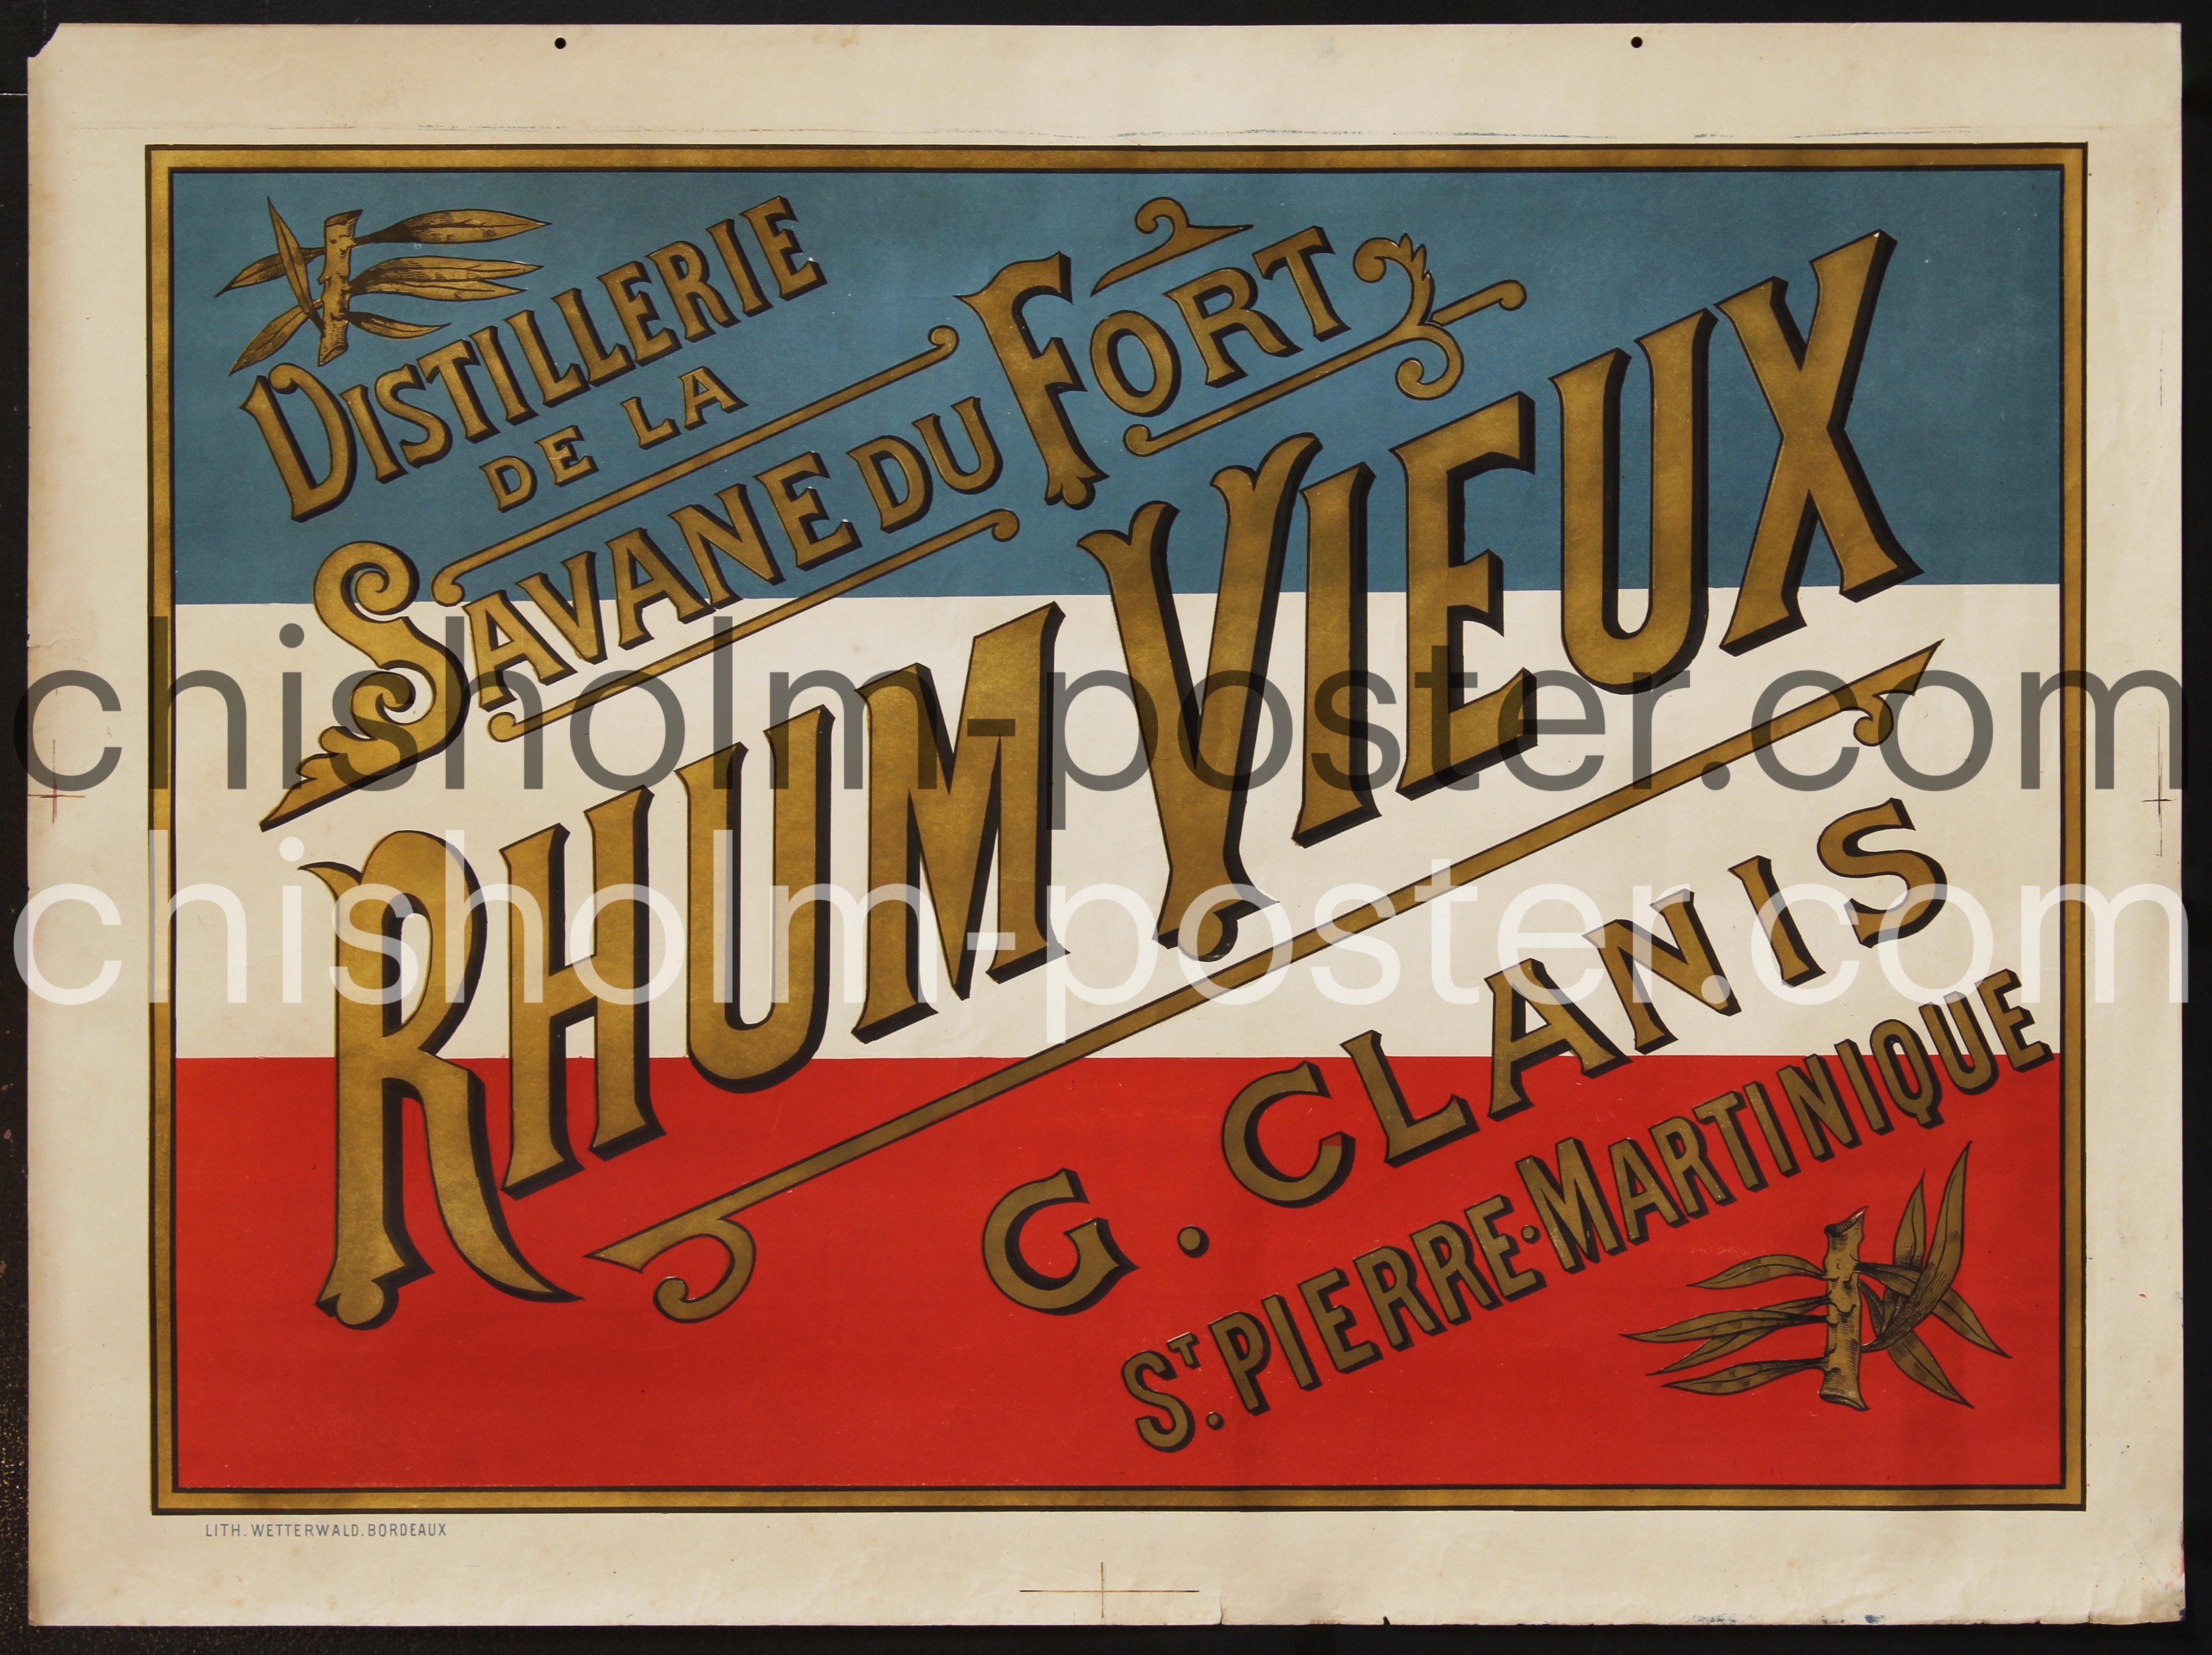 DISTILLERIE
DE LA
SAVANE DU FORT
RHUM VIEUX
G. CLANIS
ST. PIERRE·MARTINIQUE
LITH. WETTERWALD. BORDEAUX
chisholm-poster.com
chisholm-poster.com